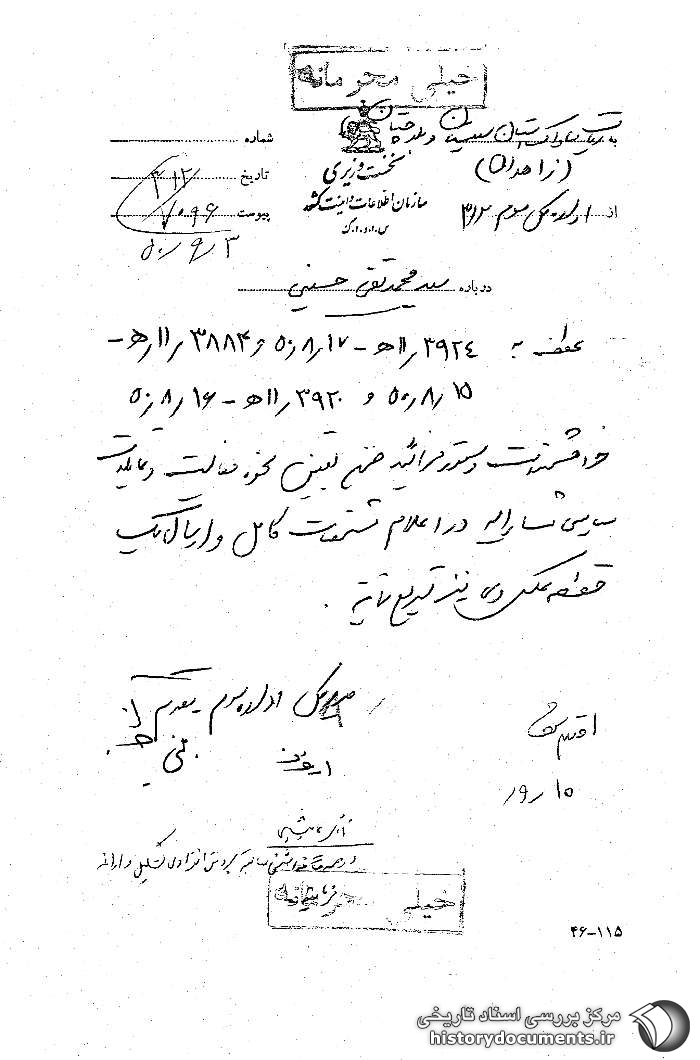 خیلی محرمانه
به ریاست ساواک استان سیستان و بلوچستان
شماره
(زاهدان)
نخست وزیری
تاریخ ۳۱۲
سازمان اطلاعات و امنیت کشور
از اداره کل سوم ۳۱۲
پیوست ۷۰۹۶
س.ا.و.ا.ک
۵۰/۹/۳
درباره سید محمد تقی حسینی
عطف به ۳۹۲۴/۱۱ه‍ - ۵۰/۸/۱۷ و ۳۸۸۴/۱۱ه‍ -
۵۰/۸/۱۵ و ۳۹۲۰/۱۱ه‍ - ۵۰/۸/۱۶
خواهشمند است دستور فرمائید ضمن تعیین نحوه فعالیت و تمایلات
سیاسی مشارالیه در اعلام مشخصات کامل و ارسال یک
قطعه عکس وی نیز تسریع نمایند .
مدیرکل اداره سوم مقدم
از طرف
اقدام شود
۱۰ روز
خیلی محرمانه
۴۶-۱۱۵
مرکز بررسی اسناد تاریخی
historydocuments.ir